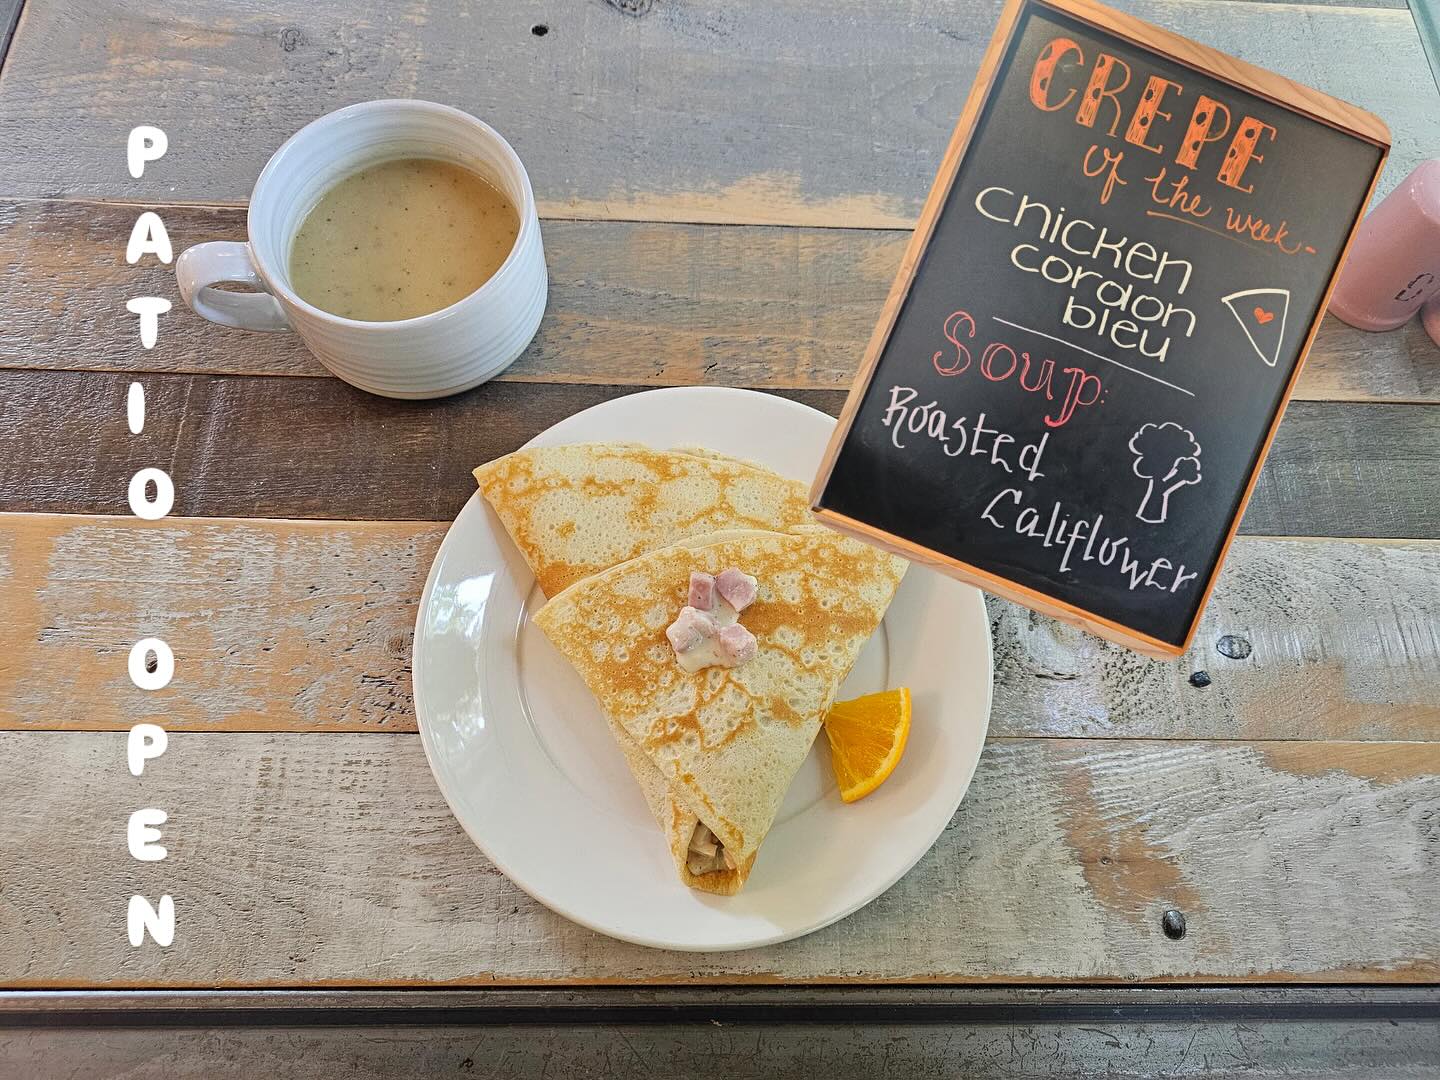 PATIO OPEN
CREPE
of the week-
Chicken
cordon
bleu
Soup:
Roasted
Califlower